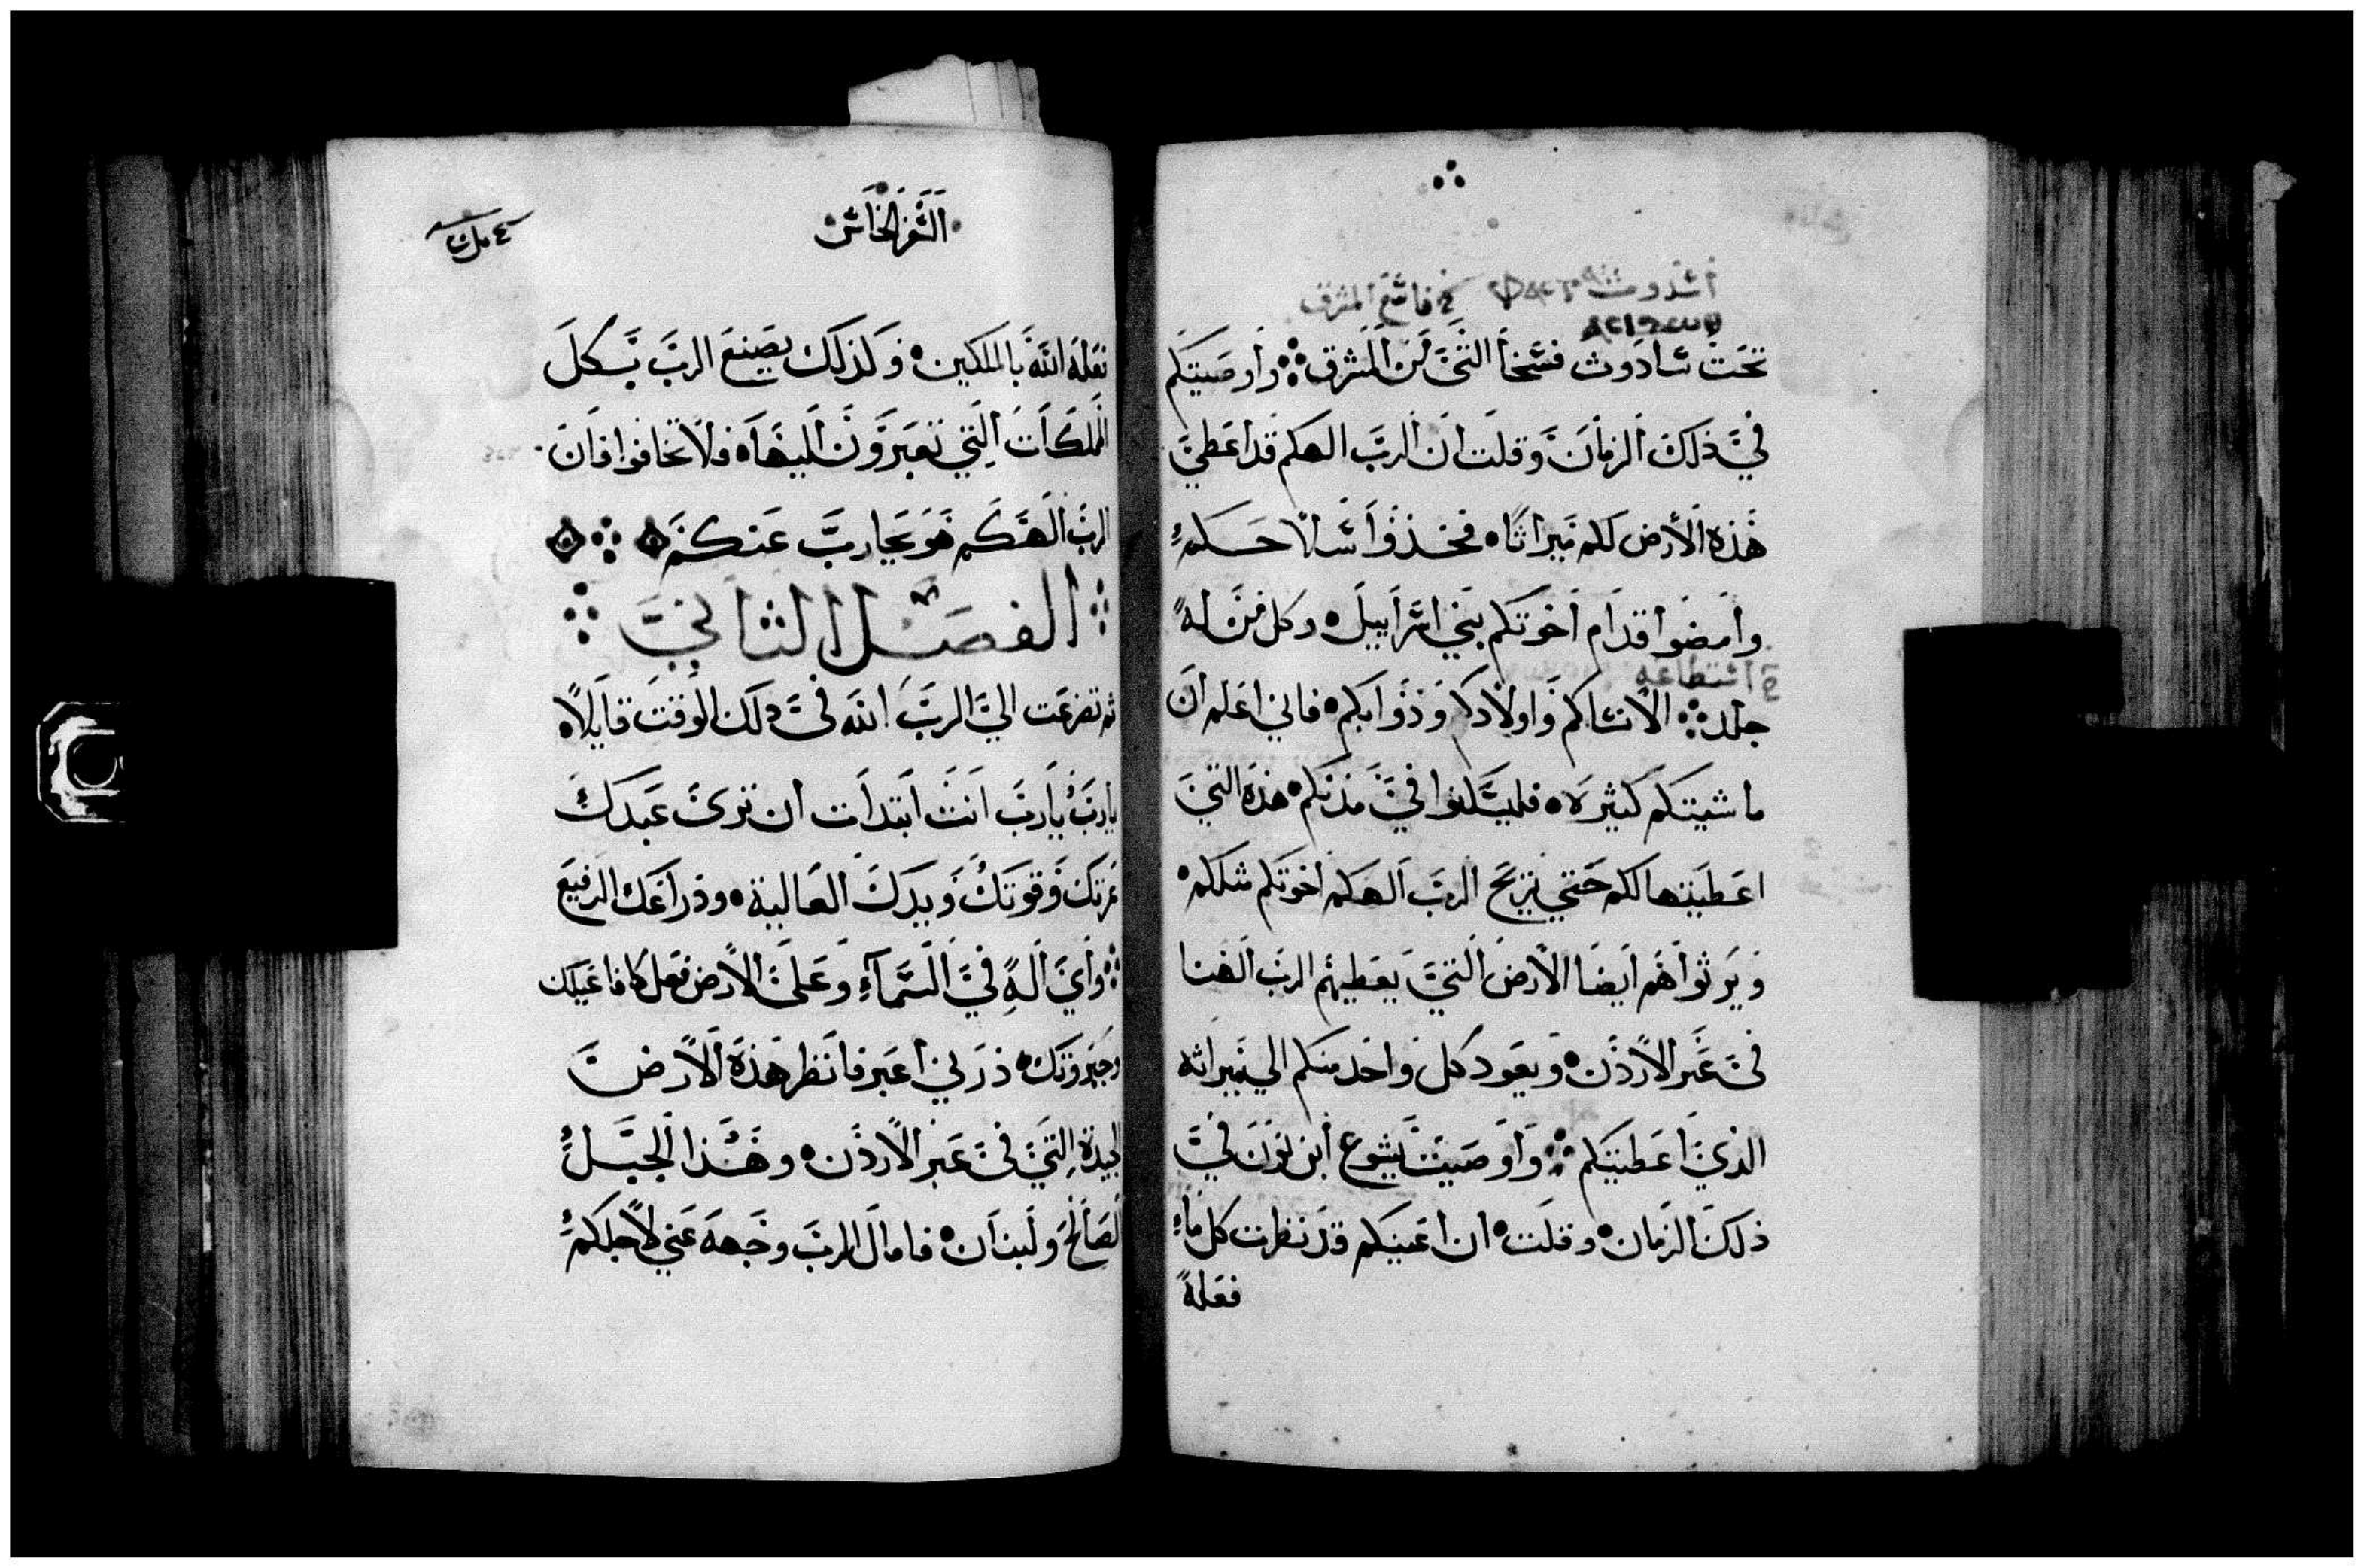 تحت سادوت فسخا التي من المشرق وأوصيتكم
في ذلك الزمان وقلت ان الرب الهكم قد اعطي
هذه الأرض لكم ميراثا فخذوا سلاحكم
وامضوا قدام اخوتكم بني اسراييل وكل من له
في استطاعه
جلد الا نساكم واولادكم وذوابكم فاني اعلم ان
ماشيتكم كثيره فليسكنوا في مدنكم هذه التي
اعطيتها لكم حتي يزيح الرب الهكم اخوتكم مثلكم
ويرثوا هم ايضا الأرض التي يعطيهم الرب الهنا
في عبر الاردن ويعود كل واحد منكم الي ميراثه
الذي اعطيتكم واوصيت يشوع ابن نون في
ذلك الزمان وقلت ان اعينكم قد نظرت كل ما
فعله
السفر الخامس
فعله الله بالملكين ولذلك يصنع الرب بكل
المملكات التي تعبرون اليها فلا تخافوا فان
الرب الهكم هو يحارب عنكم
الفصل الثاني
ثم تضرعت الي الرب الله في ذلك الوقت قايلا
يارب يارب انت ابتدات ان تري عبدك
عزتك وقوتك ويدك العالية وذراعك الرفيع
واي اله في السماء وعلي الارض فعل كافاعيلك
وجبروتك ذرني اعبر فانظر هذه الارض
الجيدة التي في عبر الاردن وهذا الجبل
الصالح ولبنان فامال الرب وجهه عني لاجلكم